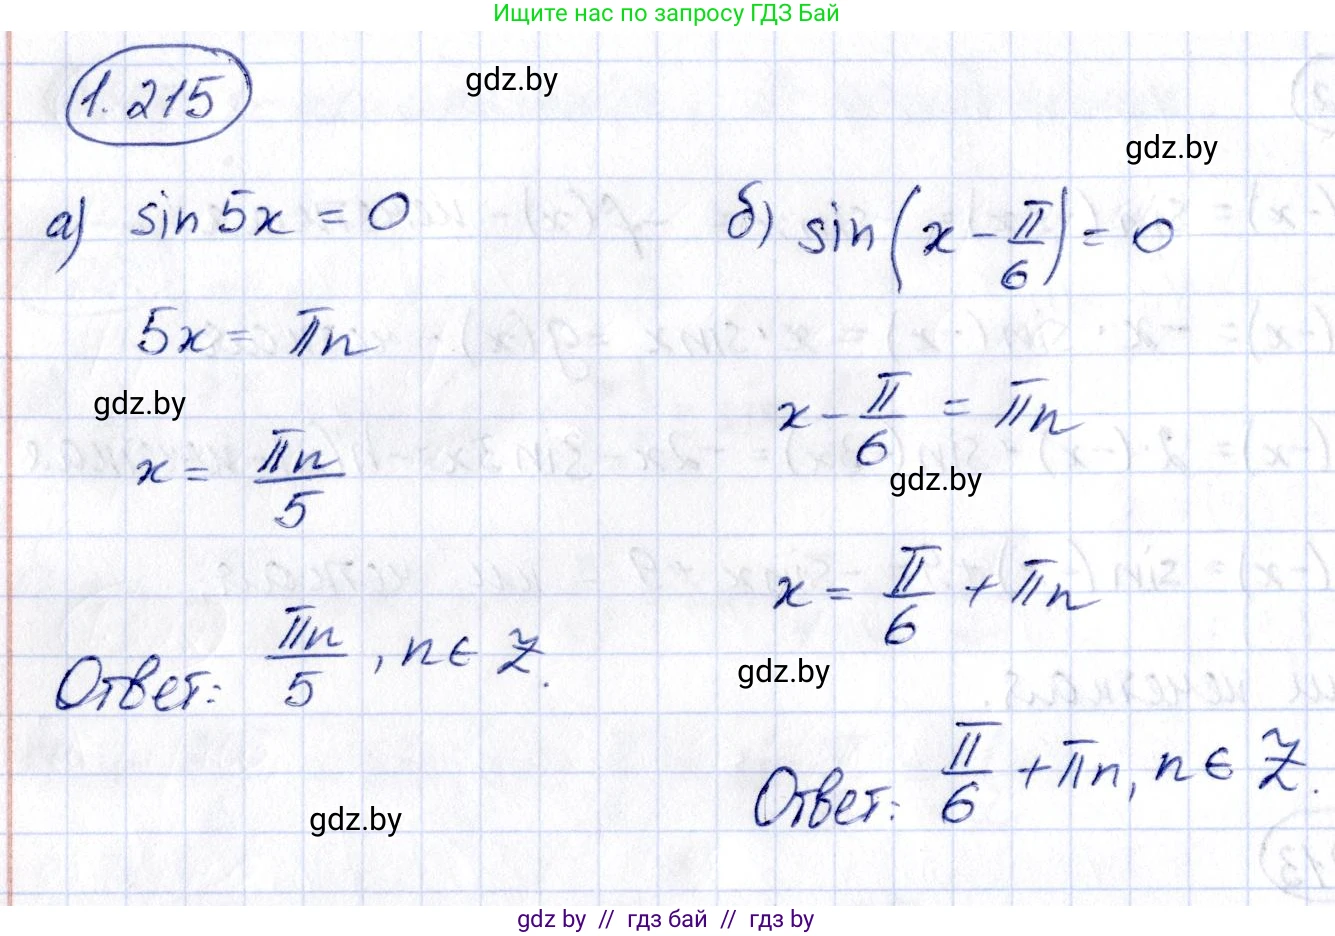 Ищите нас по запросу ГДЗ Бай
1.215
gdz.by
gdz.by
а) sin 5x = 0
5x = πn
gdz.by
x = πn/5
Ответ: πn/5, n ∈ Z.
gdz.by
б) sin(x - π/6) = 0
x - π/6 = πn
gdz.by
x = π/6 + πn
gdz.by
Ответ: π/6 + πn, n ∈ Z.
gdz by // гдз бай // гдз by